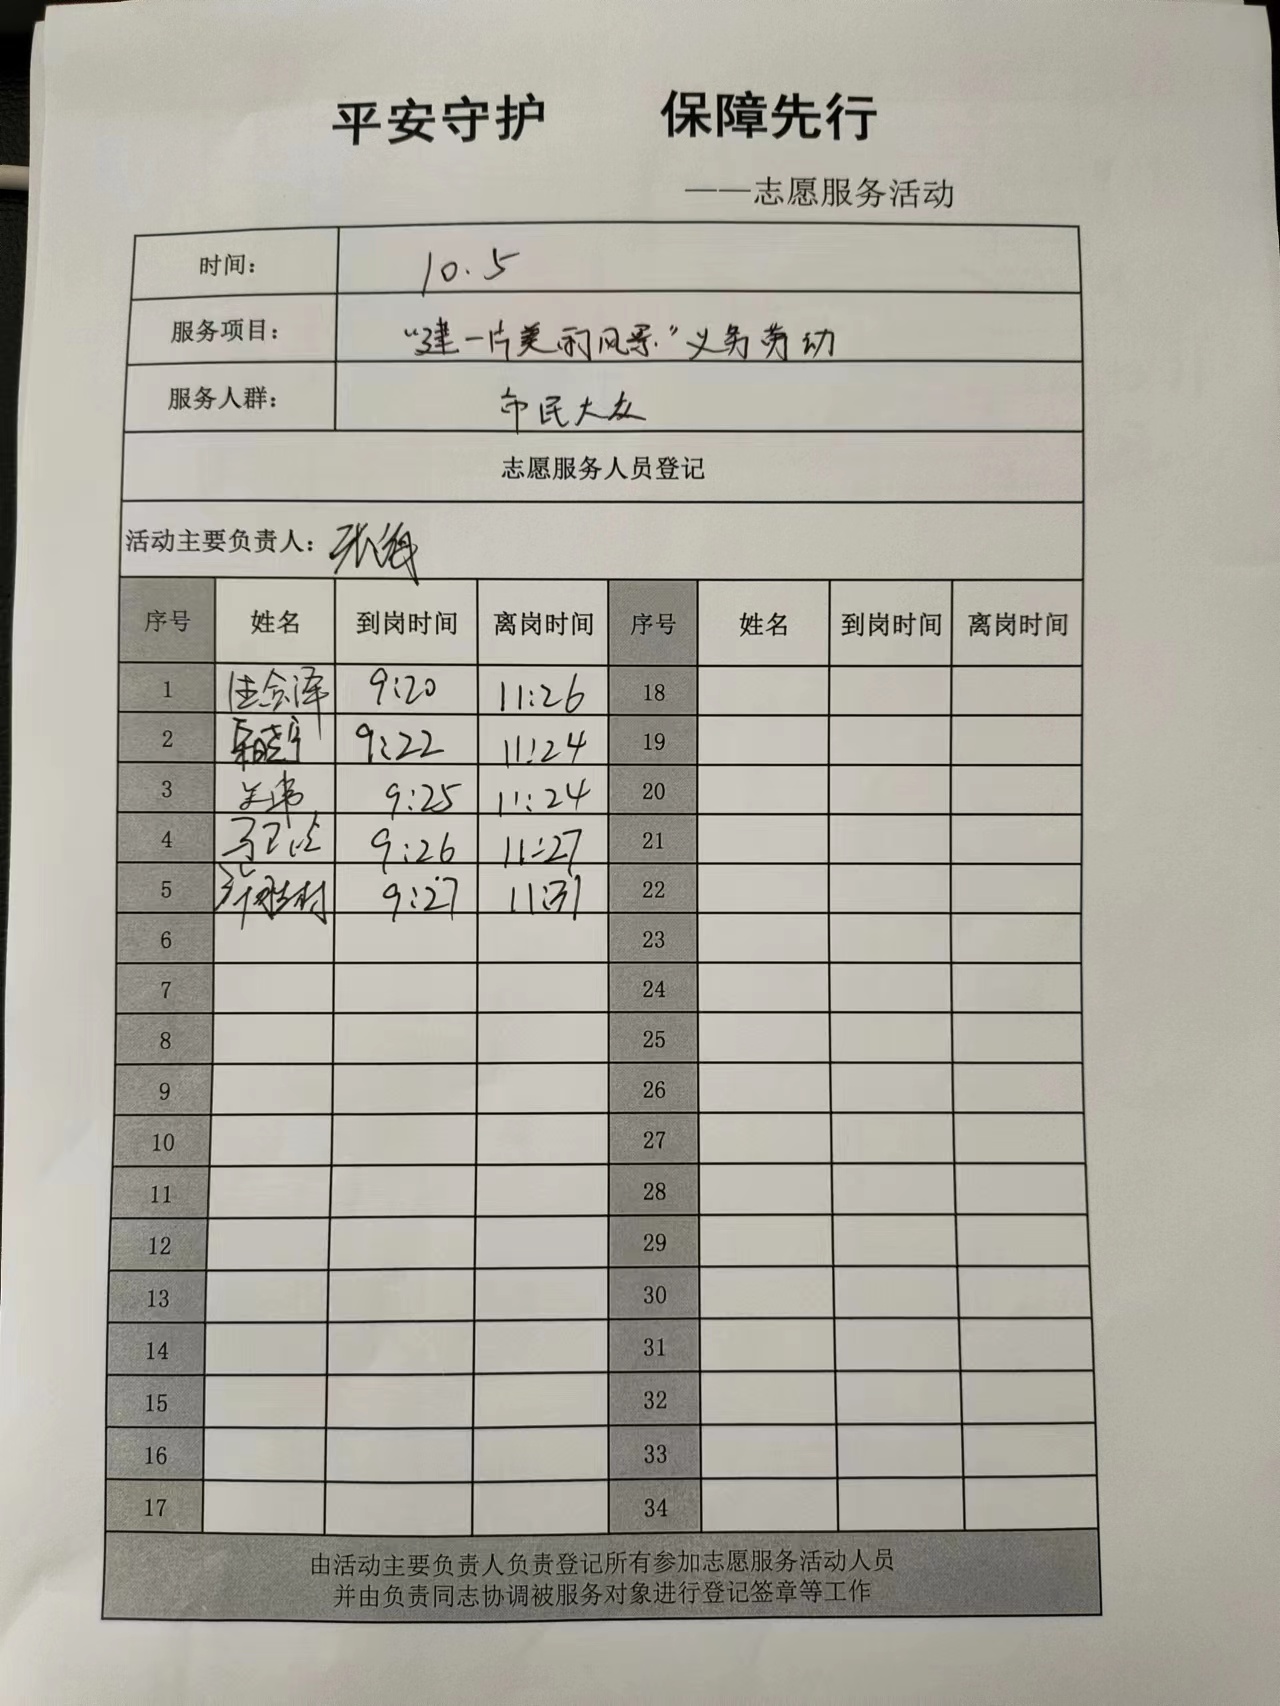 平安守护 保障先行
——志愿服务活动
时间： 10.5
服务项目： “建一片美丽风景”义务劳动
服务人群： 市民大众
志愿服务人员登记
活动主要负责人： 张海
序号 姓名 到岗时间 离岗时间 序号 姓名 到岗时间 离岗时间
1 9:20 11:26 18
2 9:22 11:24 19
3 9:25 11:24 20
4 9:26 11:27 21
5 9:27 11:31 22
6 23
7 24
8 25
9 26
10 27
11 28
12 29
13 30
14 31
15 32
16 33
17 34
由活动主要负责人负责登记所有参加志愿服务活动人员
并由负责同志协调被服务对象进行登记签章等工作